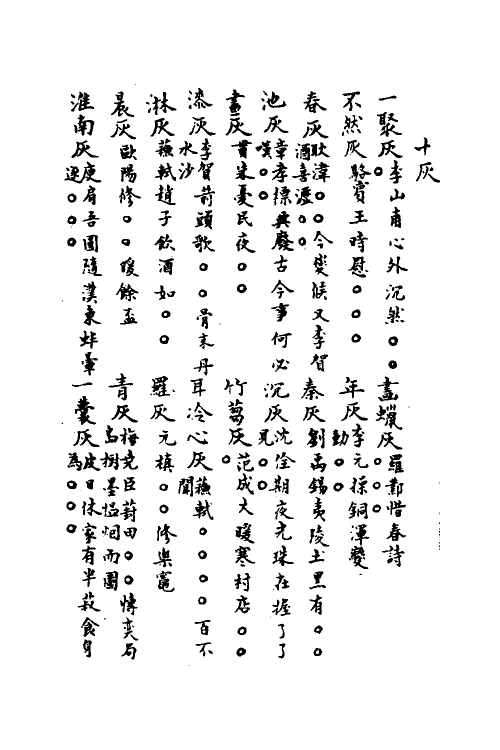 十灰
一聚灰 李山甫心外沉然○○○ 畫蠟灰 羅鄴惜春詩○○○
不然灰 駱賓王時慰○○○ 年灰 李元操銅渾變動○○
春灰 耿湋○○今變候又李賀酒喜瀝○○ 秦灰 劉禹錫夷陵土黑有○○
池灰 章孝標興廢古今事何必嘆○○ 沉灰 沈佺期夜光珠在握了了見○○
畫灰 貫休憂民夜○○ 竹葛灰 范成大暖寒村店○○○
漆灰 李賀箭頭歌○○骨末丹水沙 耳冷心灰 蘇軾○○○○百不聞
淋灰 蘇軾趙子飲酒如○○ 羅灰 元稹○○修樂竈
晨灰 歐陽修○○暖餘盃 青灰 梅堯臣葑田○○慱奕局島樹墨恬烟雨圖
淮南灰 庾肩吾圖隨漢東蚌暈逐○○○ 一囊灰 皮日休家有半菽食身為○○○